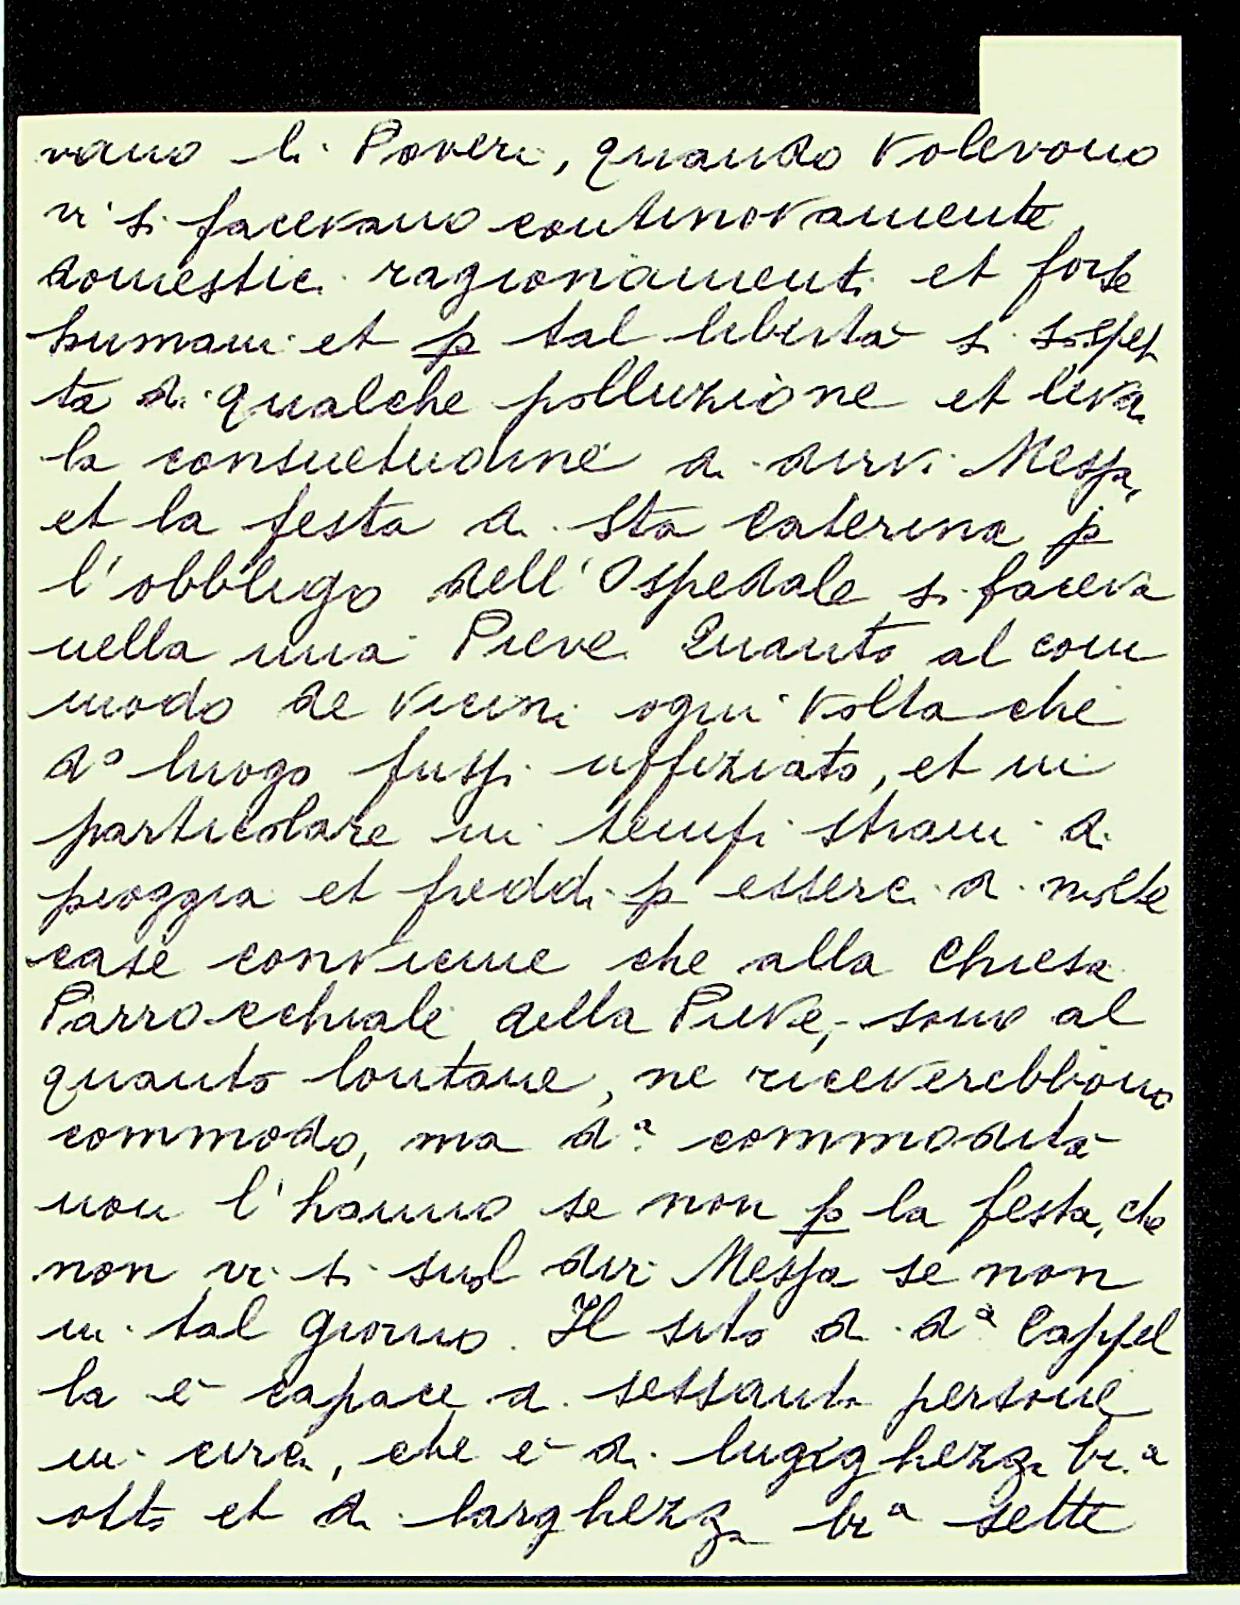 vano li Poveri, quando volevono
vi si facevano continovamente
domestici ragionamenti et forse
humani et p tal libertà si sospet
ta di qualche polluzione et leva
la consuetudine di dirvi Messa,
et la festa di Sta Caterina p
l'obbligo dell'Ospedale si faceva
nella mia Pieve. Quanto al com
modo de vicini ogni volta che
dº luogo fussi uffiziato, et in
particolare in tempi strani di
pioggia et freddi p esserci di molte
case convicine che alla Chiesa
Parrocchiale della Pieve, sono al
quanto lontane, ne riceverebbono
commodo, ma dª commodità
non l'hanno se non p la festa, che
non vi si suol dir Messa se non
in tal giorno. Il sito di dª Cappel
la è capace di sessanta persone
in circa, che è di lugighezza br.ª
otto et di larghezza brª sette